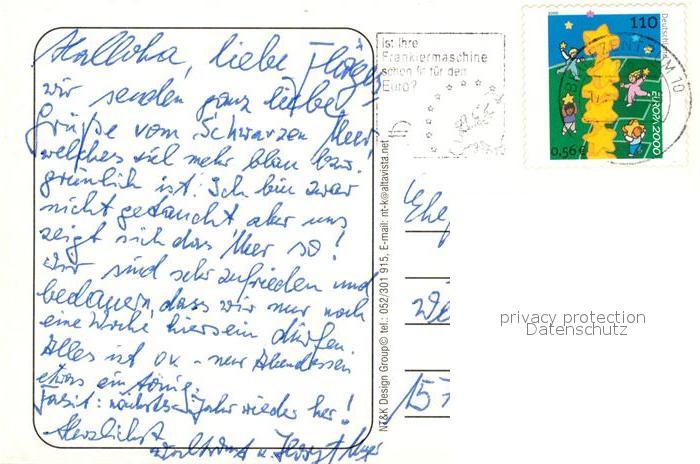 Halloha, liebe
wir senden ganz liebe
Grüße vom Schwarzen Meer
welches viel mehr blau bzw.
grünlich ist. Ich bin zwar
nicht getaucht aber uns
zeigt sich das Meer so!
Wir sind sehr zufrieden und
bedauern, dass wir nur noch
eine Woche hier sein dürfen
Alles ist ok - nur Abendessen
etwas eintönig.
Fazit: nächstes Jahr wieder her!
Herzlichst
u.
NT&K Design Group© tel.: 052/301 915, E-mail: nt-k@altavista.net
Ist Ihre
Frankiermaschine
schon fit für den
Euro?
BRIEFZENTRUM 10
2000
Deutschland
110
EUROPA 2000
0,56€
157
privacy protection
Datenschutz